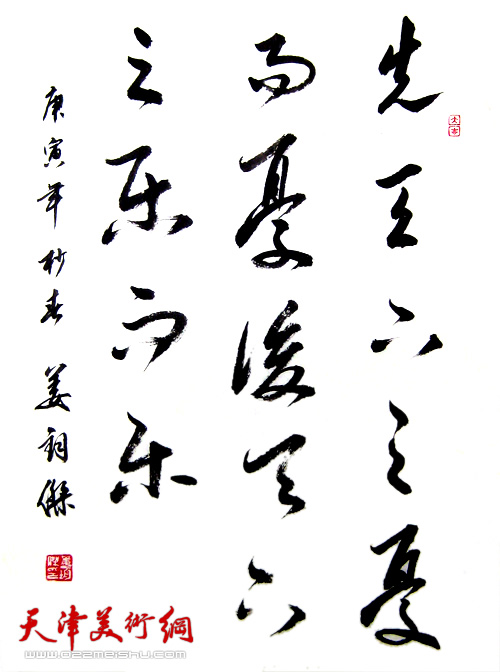 先天下之憂
而憂後天下
之乐而乐
庚寅年杪春 姜钧傑
天津美術網
www.022meishu.com